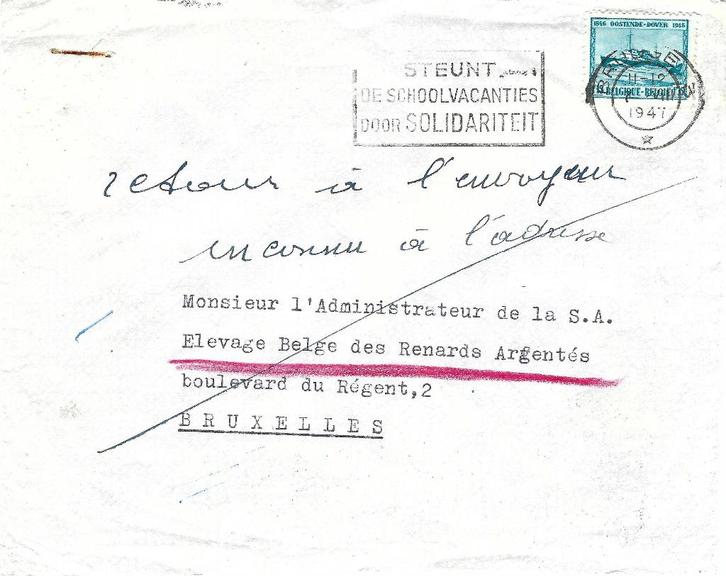 1846 OOSTENDE-DOVER 1946
BELGIQUE-BELGIE
BRUGGE
11-12
VIII
1947
STEUNT
DE SCHOOLVACANTIES
DOOR SOLIDARITEIT
retour à l'envoyeur
inconnu à l'adresse
Monsieur l'Administrateur de la S.A.
Elevage Belge des Renards Argentés
boulevard du Régent,2
BRUXELLES